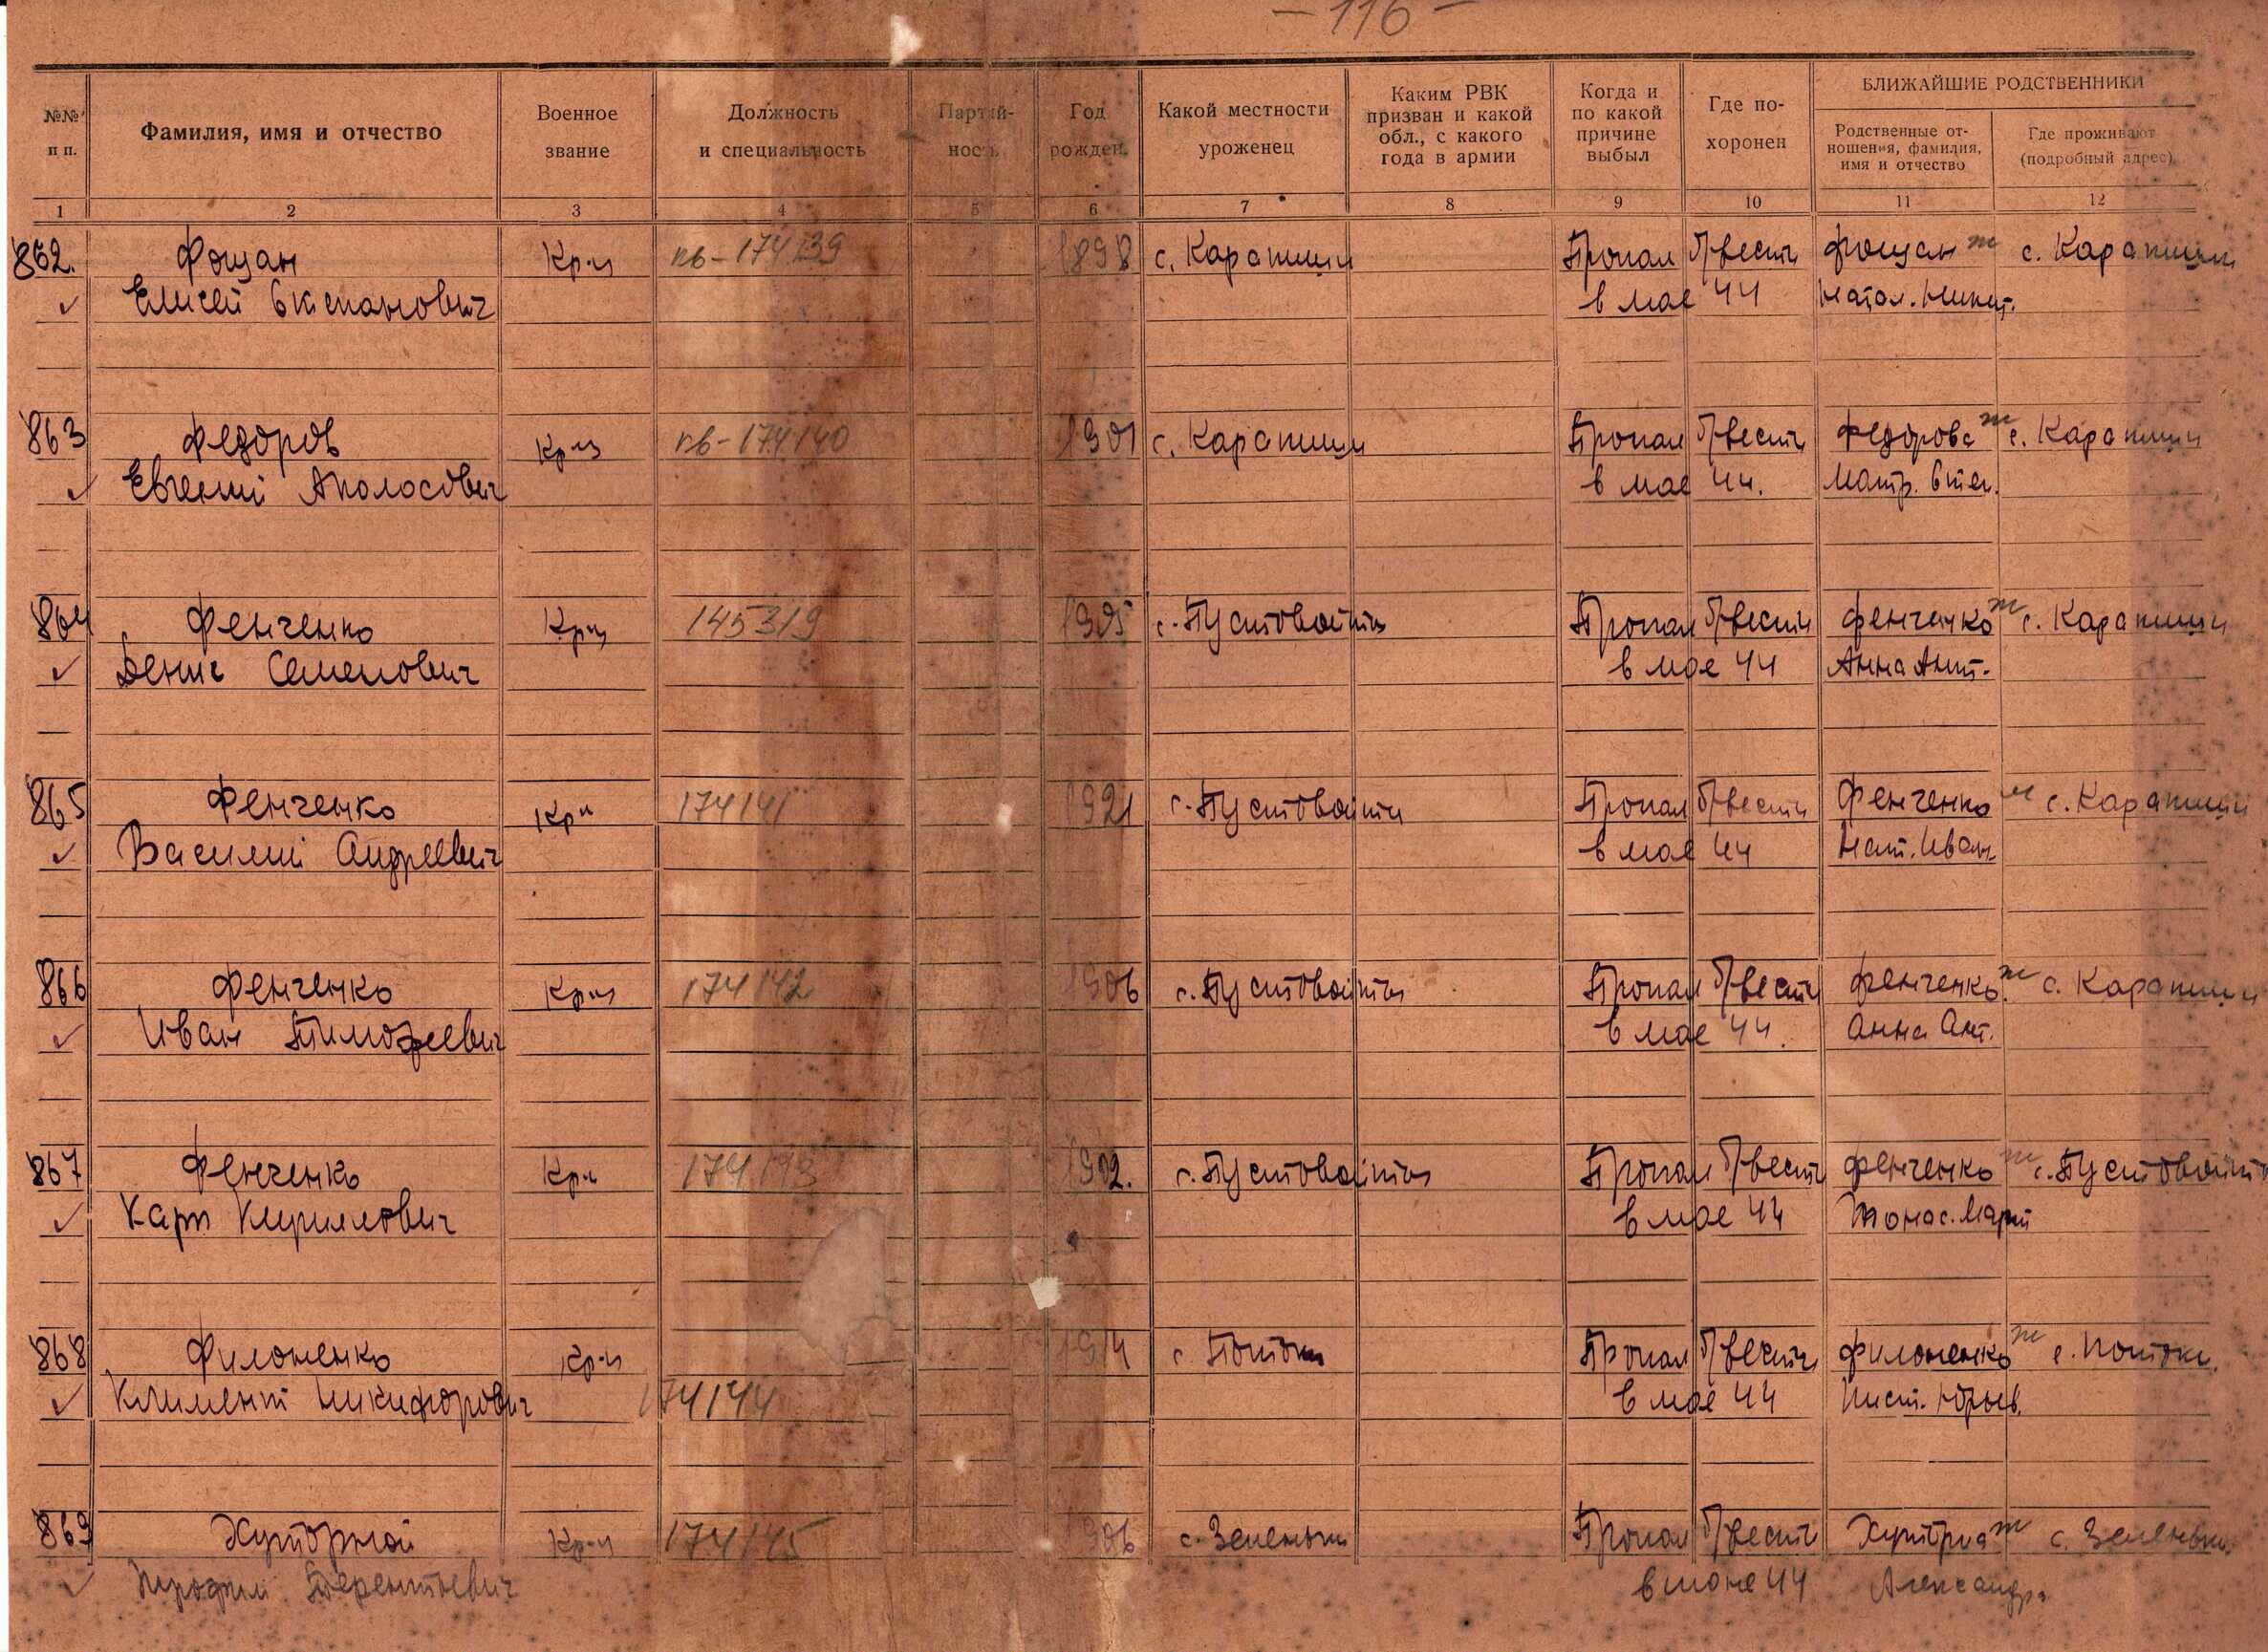 – 116 –
№№ п п.
Фамилия, имя и отчество
Военное звание
Должность и специальность
Партий- ность
Год рожден.
Какой местности уроженец
Каким РВК призван и какой обл., с какого года в армии
Когда и по какой причине выбыл
Где по- хоронен
БЛИЖАЙШИЕ РОДСТВЕННИКИ
Родственные от- ношения, фамилия, имя и отчество
Где проживают (подробный адрес)
1 2 3 4 5 6 7 8 9 10 11 12
862. Фощан Кр-ц пв-174139 1898 с. Карапиши Пропал б/вести фощан ж с. Карапиши
Елисей в мае 44 Натал. Никит.
863 Федоров Кр-ц пв-174140 1901 с. Карапиши Пропал б/вести Федорова ж с. Карапиши
Евгений Аполосович в мае 44. Матр. Степ.
864 Фенченко Кр-ц 145319 1905 с. Пустовойты Пропал б/вести Фенченко ж с. Карапиши
Денис Семенович в мае 44 Анна Ант.
865 Фенченко Кр-ц 174141 1921 с. Пустовойты Пропал б/вести Фенченко м с. Карапиши
Василий Андреевич в мае 44 Нат. Иван.
866 Фенченко Кр-ц 174142 1906 с. Пустовойты Пропал б/вести Фенченко ж с. Карапиши
Иван Тимофеевич в мае 44. Анна Ант.
867 Фенченко Кр-ц 174143 1902. с. Пустовойты Пропал б/вести Фенченко ж с. Пустовойты
Карп Кириллович в мае 44
868 Филоненко Кр-ц 1914 с. Потоки Пропал б/вести Филоненко ж с. Потоки.
Климент Никифорович 174144 в мае 44
869 Хуторной Кр-ц 174145 1906 с. Зеленьки Пропал б/вести ж с. Зеленьки
Терентьевич в июне 44 Александра